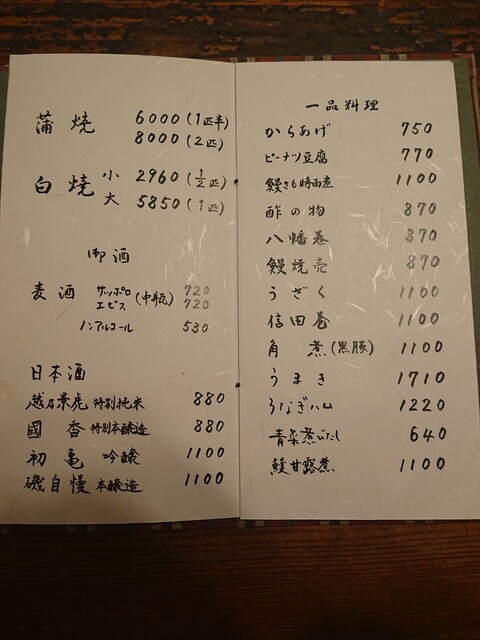 蒲焼 6000(1匹半)
8000(2匹)
白焼 小 2960(1/2匹)
大 5850(1匹)
御酒
麦酒 サッポロ(中瓶) 720
ヱビス 720
ノンアルコール 530
日本酒
越乃景虎 特別純米 880
國香 特別本醸造 880
初亀 吟醸 1100
磯自慢 本醸造 1100
一品料理
からあげ 750
ピーナツ豆腐 770
鰻きも時雨煮 1100
酢の物 870
八幡巻 870
鰻焼売 870
うざく 1100
信田巻 1100
角煮(黒豚) 1100
うまき 1710
うなぎハム 1220
青菜煮びたし 640
鰻甘露煮 1100